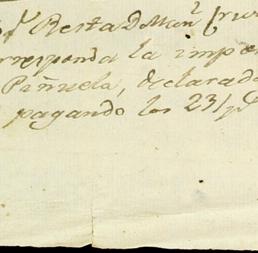 Resta D. Man.l
rresponda a la impo
Piñuela, declarada
pagando los 23 1/2